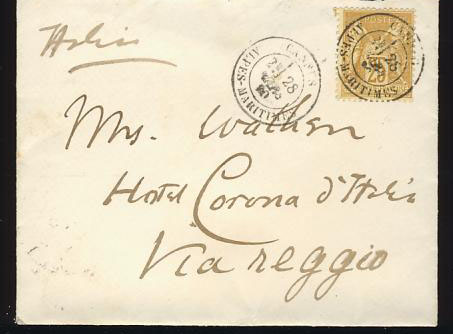 Italie
CANNES
1
28
ALPES-MARITIMES
POSTES
CANNES
28
ALPES-MARITIMES
Mrs. Walken
Hotel Corona d'Italia
Viareggio